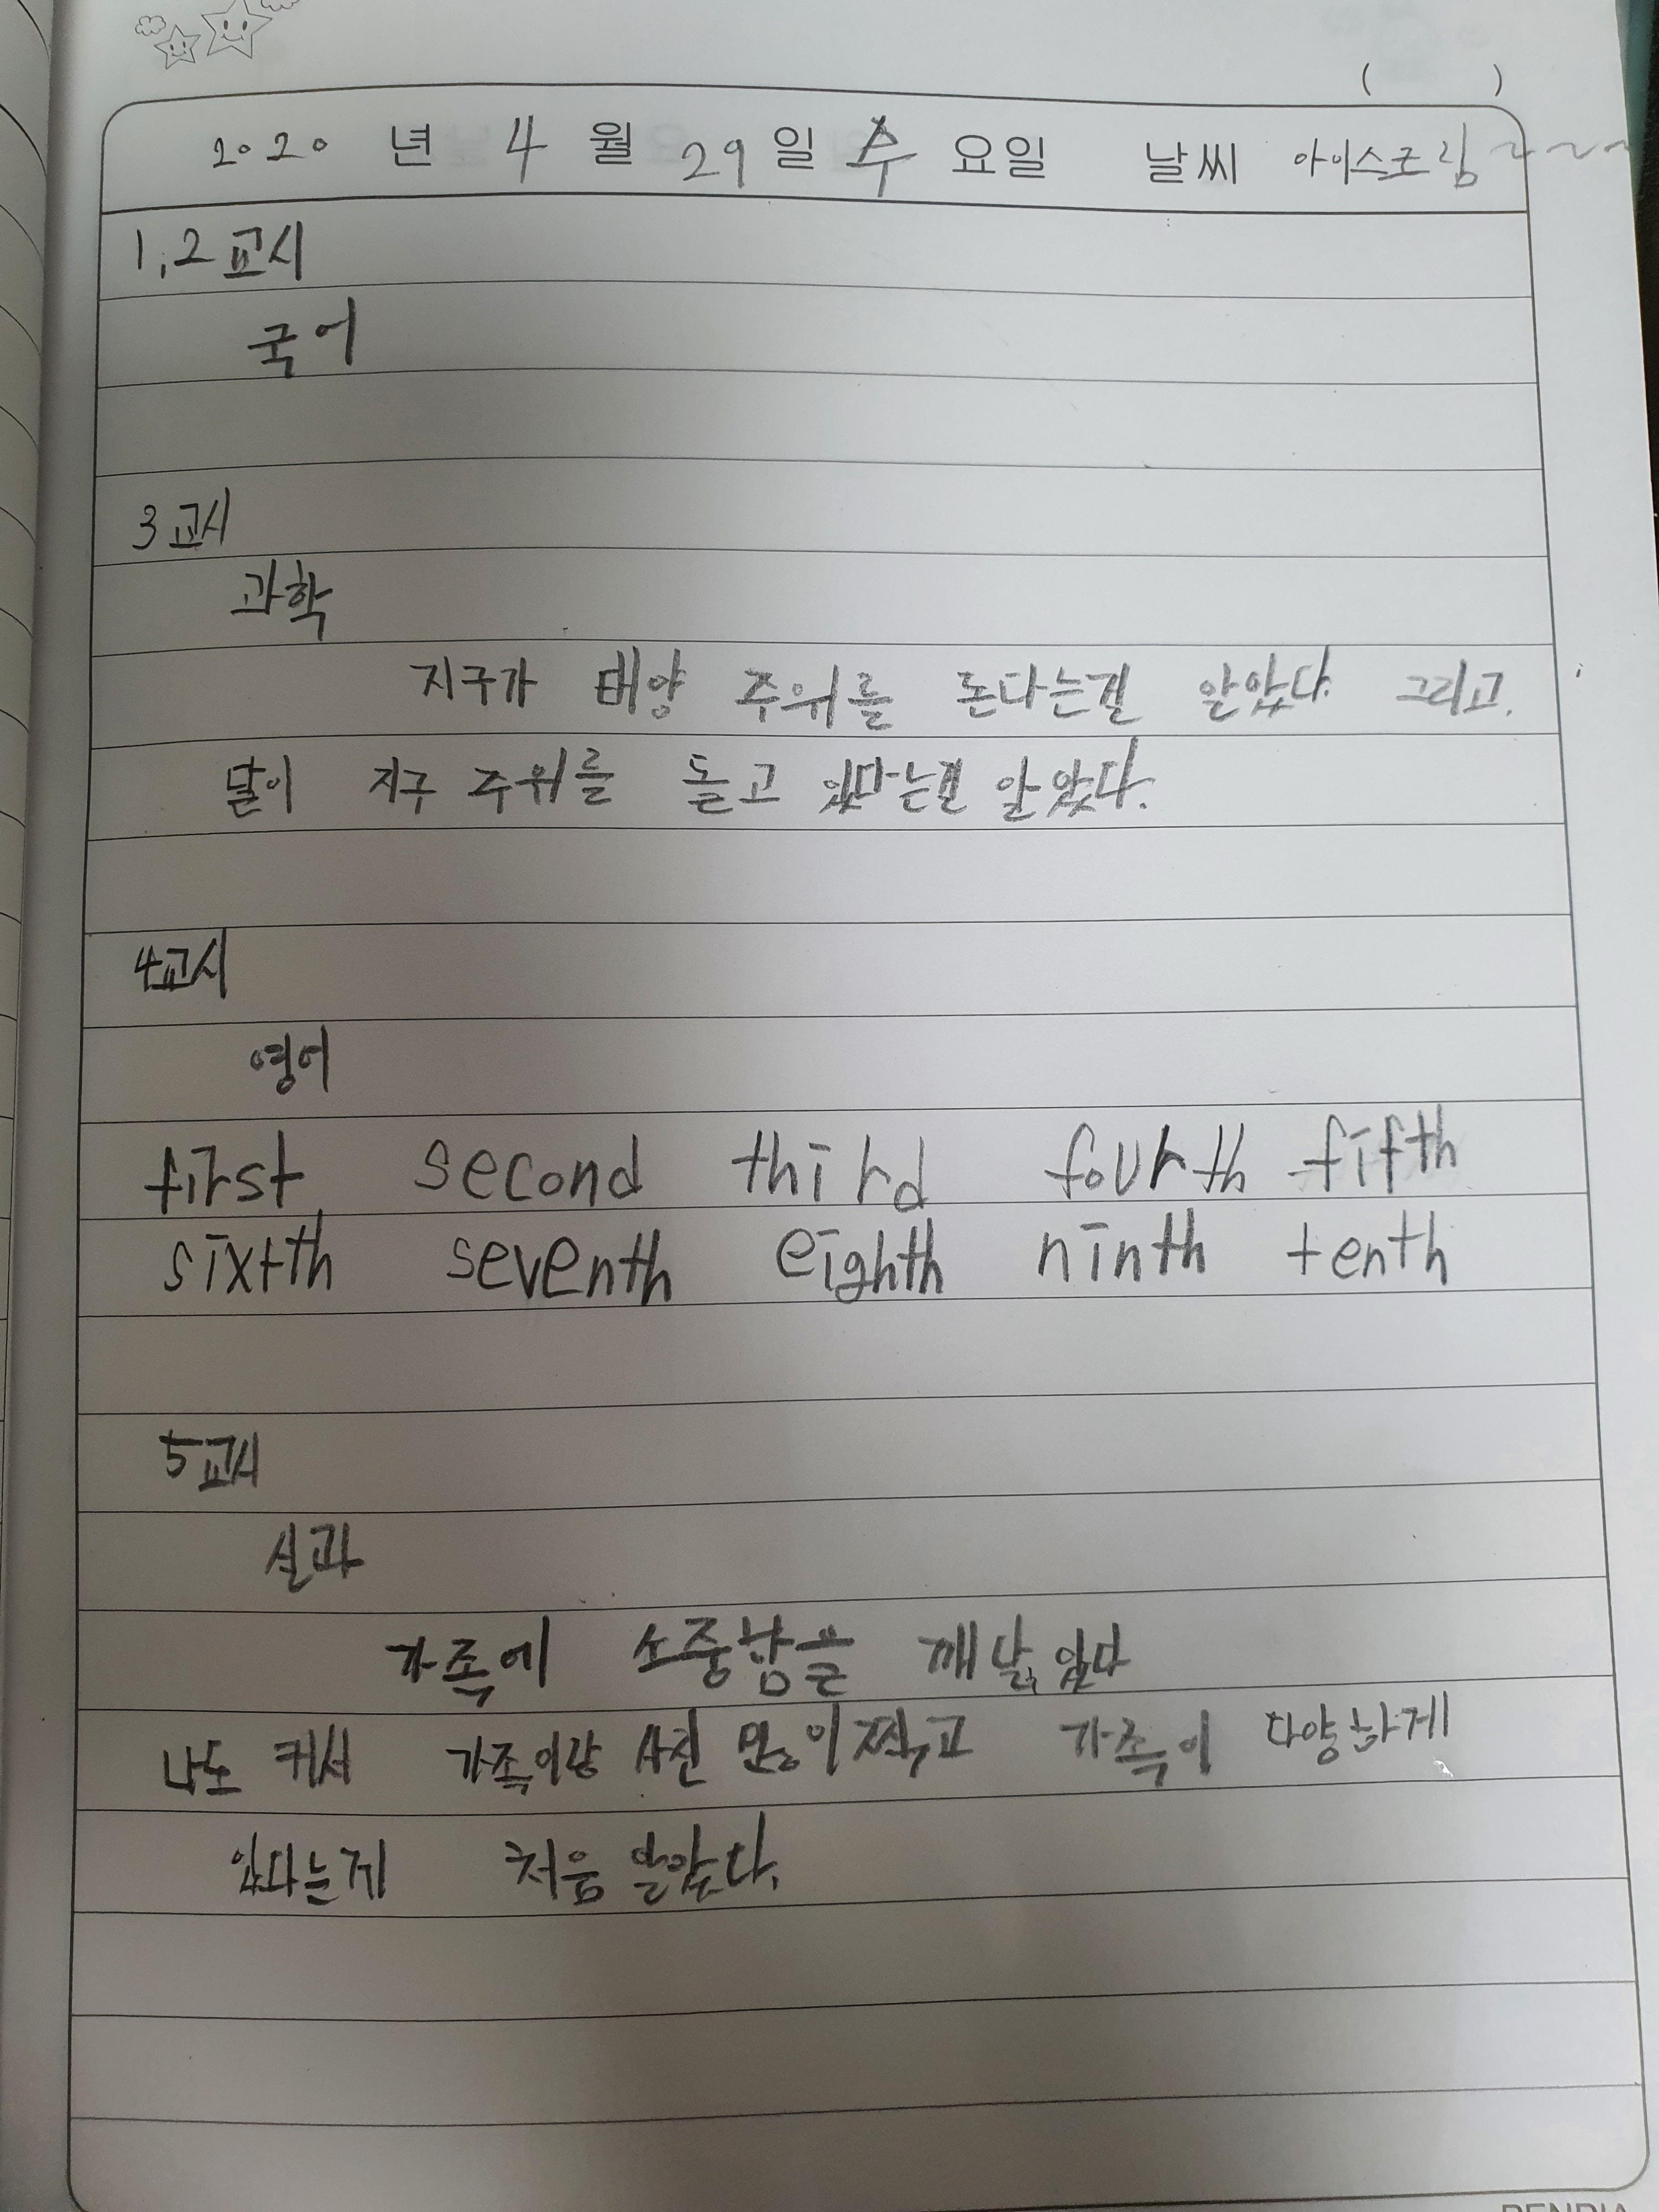 (          )
2020 년 4 월 29 일 수 요일 날씨 아이스크림~~~
1,2교시
국어
3교시
과학
지구가 태양 주위를 돈다는걸 알았다. 그리고.
달이 지구 주위를 돌고 있다는걸 알았다.
4교시
영어
first second third fourth fifth
sixth seventh eighth ninth tenth
5교시
실과
가족에 소중함을 깨닳았다
나도 커서 가족이랑 사진 많이 찍고 가족이 다양하게
있다는게 처음 알았다.